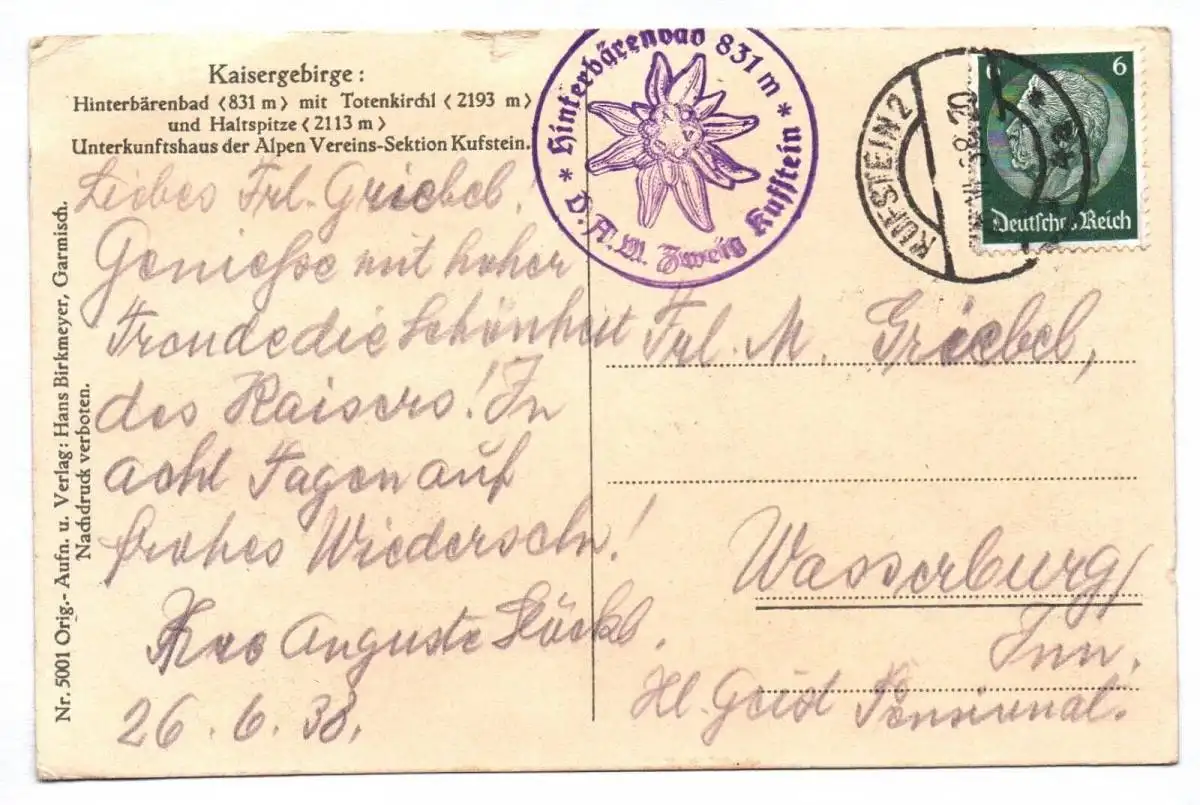 Kaisergebirge:
Hinterbärenbad <831 m> mit Totenkirchl <2193 m>
und Haltspitze <2113 m>
Unterkunftshaus der Alpen Vereins-Sektion Kufstein.
Liebes Frl. Griebel!
Genieße mit hoher
Freude die Schönheit
des Kaisers! In
acht Tagen auf
frohes Wiedersehn!
Auguste Stöckl.
26.6.38.
Nr. 5001 Orig.- Aufn. u. Verlag: Hans Birkmeyer, Garmisch.
Nachdruck verboten.
* Hinterbärenbad 831 m *
D. A. V. Zweig Kufstein
KUFSTEIN 2
6 6
Deutsches Reich
Frl. M. Griebel,
Wasserburg/
Inn.
Hl. Geist Pensionat.